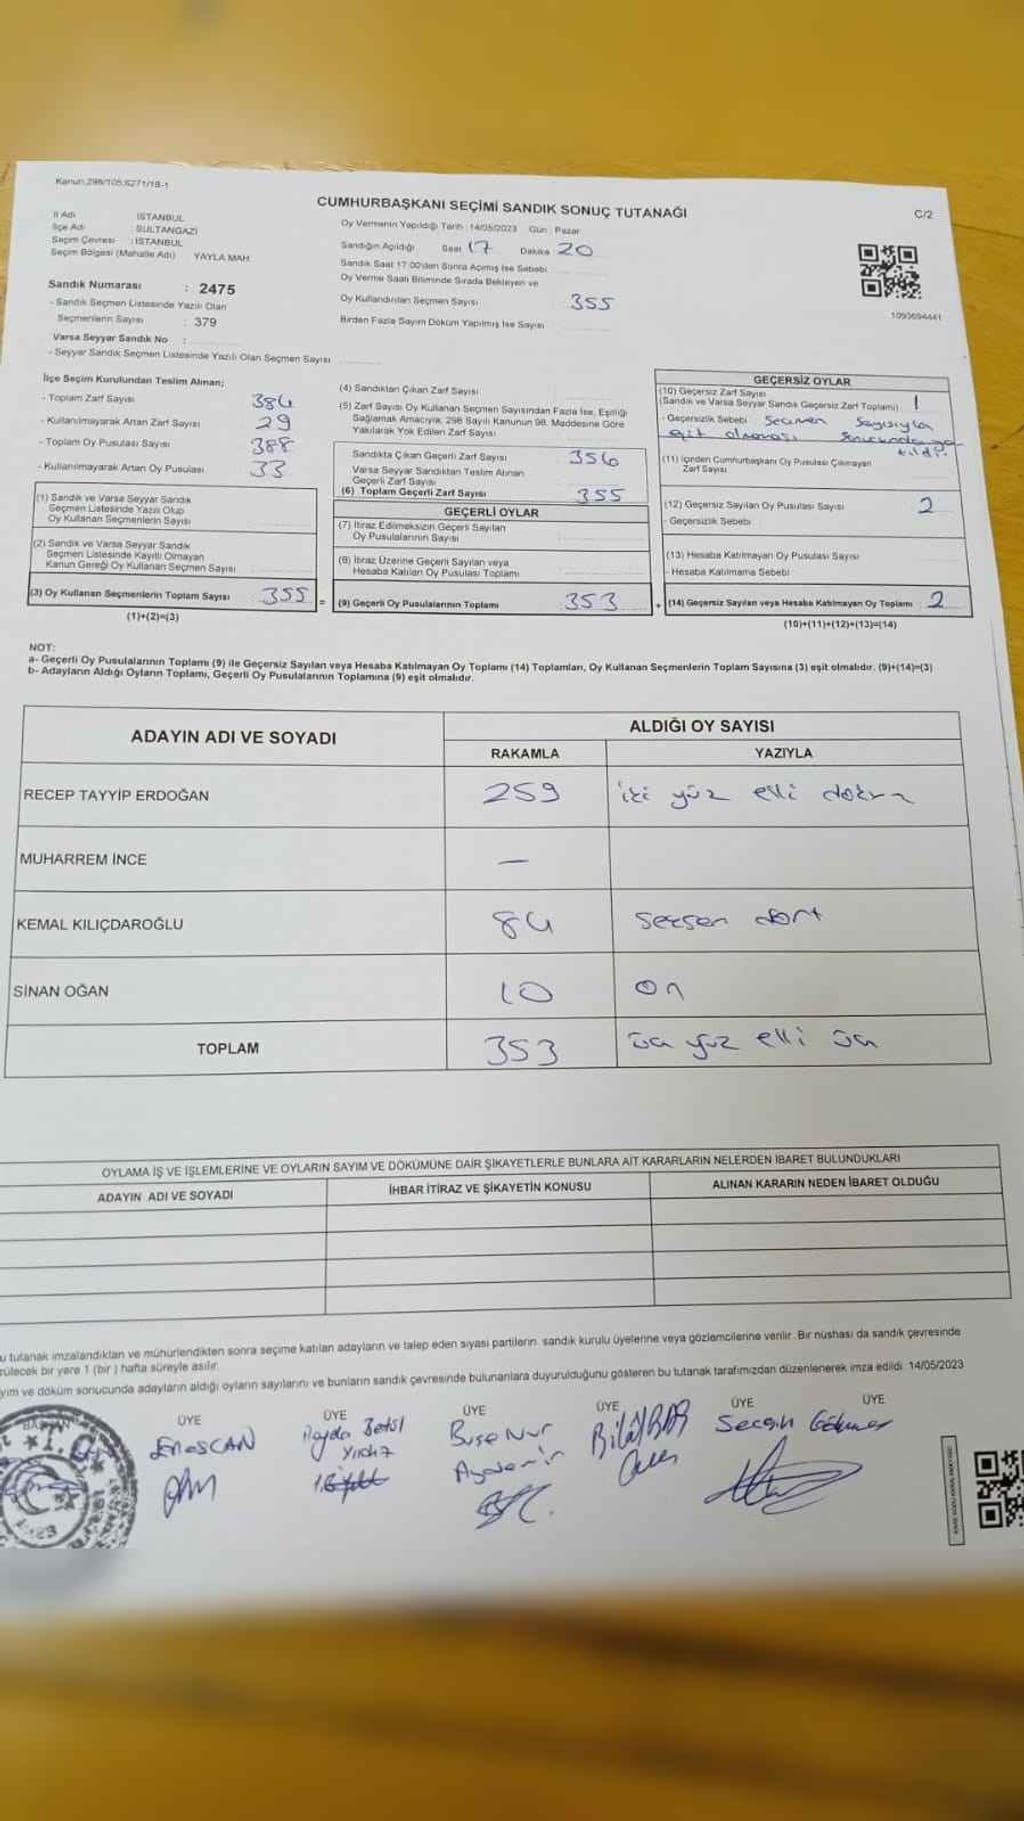 Kanun:298/105;6271/18-1
CUMHURBAŞKANI SEÇİMİ SANDIK SONUÇ TUTANAĞI
C/2
İl Adı : İSTANBUL
İlçe Adı : SULTANGAZİ
Seçim Çevresi : İSTANBUL
Seçim Bölgesi (Mahalle Adı) YAYLA MAH.
Sandık Numarası : 2475
- Sandık Seçmen Listesinde Yazılı Olan
Seçmenlerin Sayısı : 379
Varsa Seyyar Sandık No :
- Seyyar Sandık Seçmen Listesinde Yazılı Olan Seçmen Sayısı
Oy Vermenin Yapıldığı Tarih : 14/05/2023 Gün : Pazar
Sandığın Açıldığı Saat 17 Dakika 20
Sandık Saat 17:00'den Sonra Açılmış İse Sebebi
Oy Verme Saati Bitiminde Sırada Bekleyen ve
Oy Kullandırılan Seçmen Sayısı 355
Birden Fazla Sayım Döküm Yapılmış İse Sayısı
1093694441
İlçe Seçim Kurulundan Teslim Alınan;
- Toplam Zarf Sayısı 384
- Kullanılmayarak Artan Zarf Sayısı 29
- Toplam Oy Pusulası Sayısı 388
- Kullanılmayarak Artan Oy Pusulası 33
(1) Sandık ve Varsa Seyyar Sandık
Seçmen Listesinde Yazılı Olup
Oy Kullanan Seçmenlerin Sayısı
(2) Sandık ve Varsa Seyyar Sandık
Seçmen Listesinde Kayıtlı Olmayan
Kanun Gereği Oy Kullanan Seçmen Sayısı
(3) Oy Kullanan Seçmenlerin Toplam Sayısı 355 =
(1)+(2)=(3)
(4) Sandıktan Çıkan Zarf Sayısı
(5) Zarf Sayısı Oy Kullanan Seçmen Sayısından Fazla İse, Eşitliği
Sağlamak Amacıyla, 298 Sayılı Kanunun 98. Maddesine Göre
Yakılarak Yok Edilen Zarf Sayısı
Sandıkta Çıkan Geçerli Zarf Sayısı 356
Varsa Seyyar Sandıktan Teslim Alınan
Geçerli Zarf Sayısı
(6) Toplam Geçerli Zarf Sayısı 355
GEÇERLİ OYLAR
(7) İtiraz Edilmeksizin Geçerli Sayılan
Oy Pusulalarının Sayısı
(8) İtiraz Üzerine Geçerli Sayılan veya
Hesaba Katılan Oy Pusulası Toplamı
(9) Geçerli Oy Pusulalarının Toplamı 353 +
GEÇERSİZ OYLAR
(10) Geçersiz Zarf Sayısı
(Sandık ve Varsa Seyyar Sandık Geçersiz Zarf Toplamı) 1
- Geçersizlik Sebebi Seçmen Sayısıyla
eşit olmaması sonucunda
(11) İçinden Cumhurbaşkanı Oy Pusulası Çıkmayan
Zarf Sayısı
(12) Geçersiz Sayılan Oy Pusulası Sayısı 2
- Geçersizlik Sebebi
(13) Hesaba Katılmayan Oy Pusulası Sayısı
- Hesaba Katılmama Sebebi
(14) Geçersiz Sayılan veya Hesaba Katılmayan Oy Toplamı 2
(10)+(11)+(12)+(13)=(14)
NOT:
a- Geçerli Oy Pusulalarının Toplamı (9) ile Geçersiz Sayılan veya Hesaba Katılmayan Oy Toplamı (14) Toplamları, Oy Kullanan Seçmenlerin Toplam Sayısına (3) eşit olmalıdır. (9)+(14)=(3)
b- Adayların Aldığı Oyların Toplamı, Geçerli Oy Pusulalarının Toplamına (9) eşit olmalıdır.
ADAYIN ADI VE SOYADI
ALDIĞI OY SAYISI
RAKAMLA YAZIYLA
RECEP TAYYİP ERDOĞAN 259 iki yüz elli dokuz
MUHARREM İNCE —
KEMAL KILIÇDAROĞLU 84 seksen dört
SİNAN OĞAN 10 on
TOPLAM 353 üç yüz elli üç
OYLAMA İŞ VE İŞLEMLERİNE VE OYLARIN SAYIM VE DÖKÜMÜNE DAİR ŞİKAYETLERLE BUNLARA AİT KARARLARIN NELERDEN İBARET BULUNDUKLARI
ADAYIN ADI VE SOYADI İHBAR İTİRAZ VE ŞİKAYETİN KONUSU ALINAN KARARIN NEDEN İBARET OLDUĞU
u tutanak imzalandıktan ve mühürlendikten sonra seçime katılan adayların ve talep eden siyasi partilerin, sandık kurulu üyelerine veya gözlemcilerine verilir. Bir nüshası da sandık çevresinde
rülecek bir yere 1 (bir) hafta süreyle asılır.
yım ve döküm sonucunda adayların aldığı oyların sayılarını ve bunların sandık çevresinde bulunanlara duyurulduğunu gösteren bu tutanak tarafımızdan düzenlenerek imza edildi. 14/05/2023
BAŞKAN ÜYE ÜYE ÜYE ÜYE ÜYE ÜYE
Enes CAN
Betül
Yıldız
Buse Nur
Bilal BAŞ
Seçgin Gökmen
T.C.